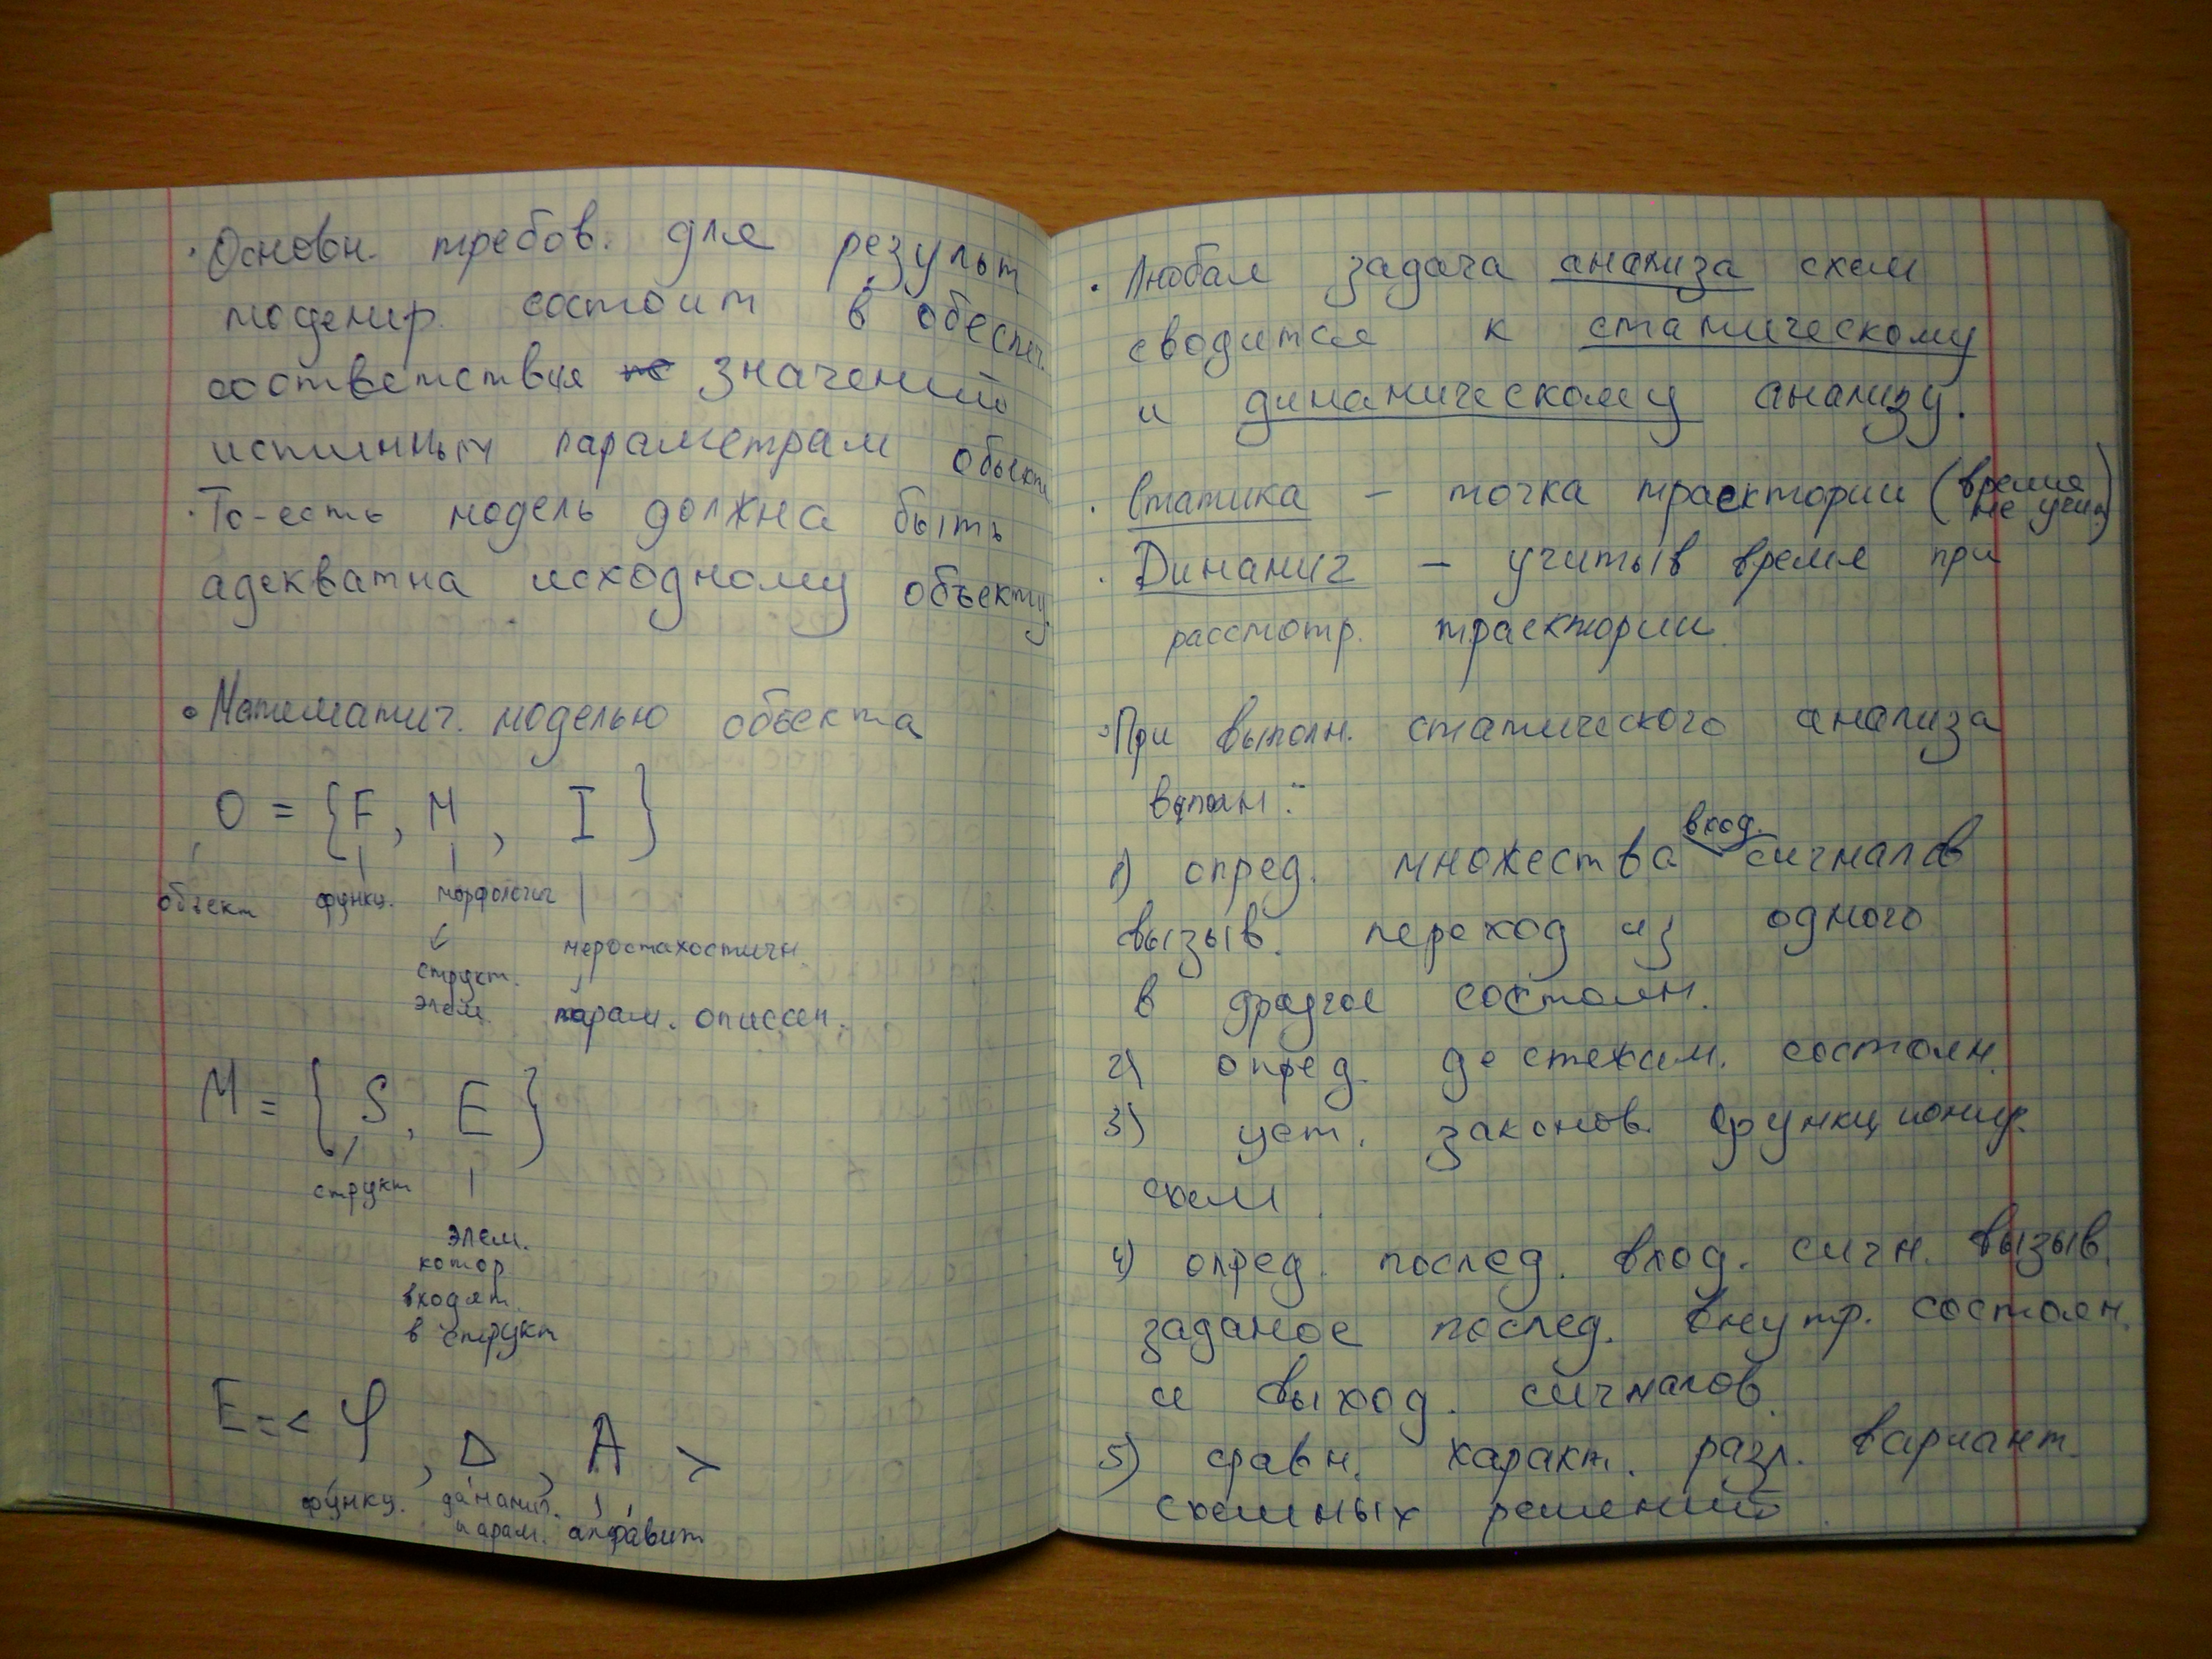 · Основн. требов. для результ
моделир. состоит в обеспеч.
соответствия значений
истинным параметрам объекта
· То-есть модель должна быть
адекватна исходному объекту.
• Математич. моделью объекта
O = {F, M, I}
объект функц. морфологич
структ. элем.
парам. описсан.
M = {S, E}
структ
элем.
котор
входят.
в структ
E = < φ, D, A >
функц. динамич. парам. алфавит
· Любая задача анализа схем
сводится к статическому
и динамическому анализу.
· Статика – точка траектории (время не учит)
· Динамич – учитыв время при
рассмотр. траектории.
· При выполн. статического анализа
выполн:
1) опред. множества вход. сигналов
вызыв. переход из одного
в другое состоян.
2) опред. достежим. состоян.
3) уст. законов. функционир.
схем.
4) опред. послед. вход. сигн. вызыв.
заданое послед. внутр. состоян.
и выход. сигналов.
5) сравн. характ. разл. вариант.
схемных решений.